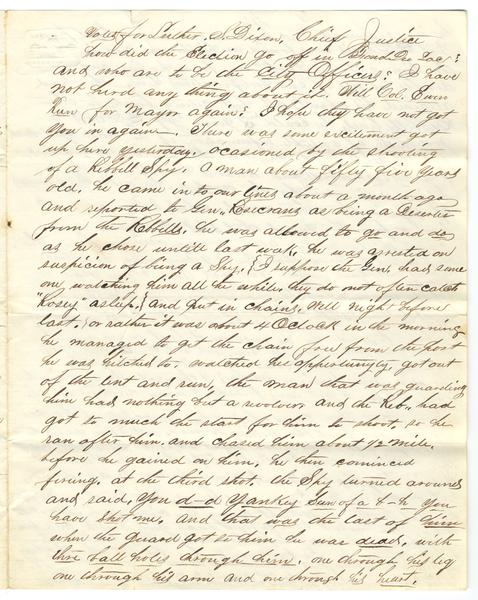 Votes for Luther. S. Dixon, Chief Justice
how did the Election go off in Fond Du Lac?
and who are to be the City Officers? I have
not herd any thing about it. Will Col. Ewen
Run for Mayor again? I hope they have not got
You in again. There was some excitement got
up here yesterday. ocasioned by the shooting
of a Rebbill Spy. a man about fifty five years
old. he came in to our lines about a month ago
and reported to Gen. Rosecrans as being a Deserter
from the Rebbills. he was allowed to go and do
as he chose untill last week, he was arrested on
suspicion of being a Spy. {I suppose the Gen. had some
one watching him all the while. they do not often catch
"Rosey" asleep.} and put in chains. Well night before
last. or rather it was about 4 OClock in the morning
he managed to get the chain free from the post
he was hitched to. watched his oppertunity. got out
of the tent and run, the man that was guarding
him had nothing but a revolver and the Reb. had
got to much the start for him to shoot. so he
ran after him. and chased him about 1/2 mile.
before he gained on him. he then cominced
firing. at the third shot. the Spy turned around
and said. You d-d Yankey Sun of a b-h You
have shot me. and that was the last of him
when the Guard got to him he was dead, with
thre ball holes through him. one through his leg
one through his arm and one through his heart.